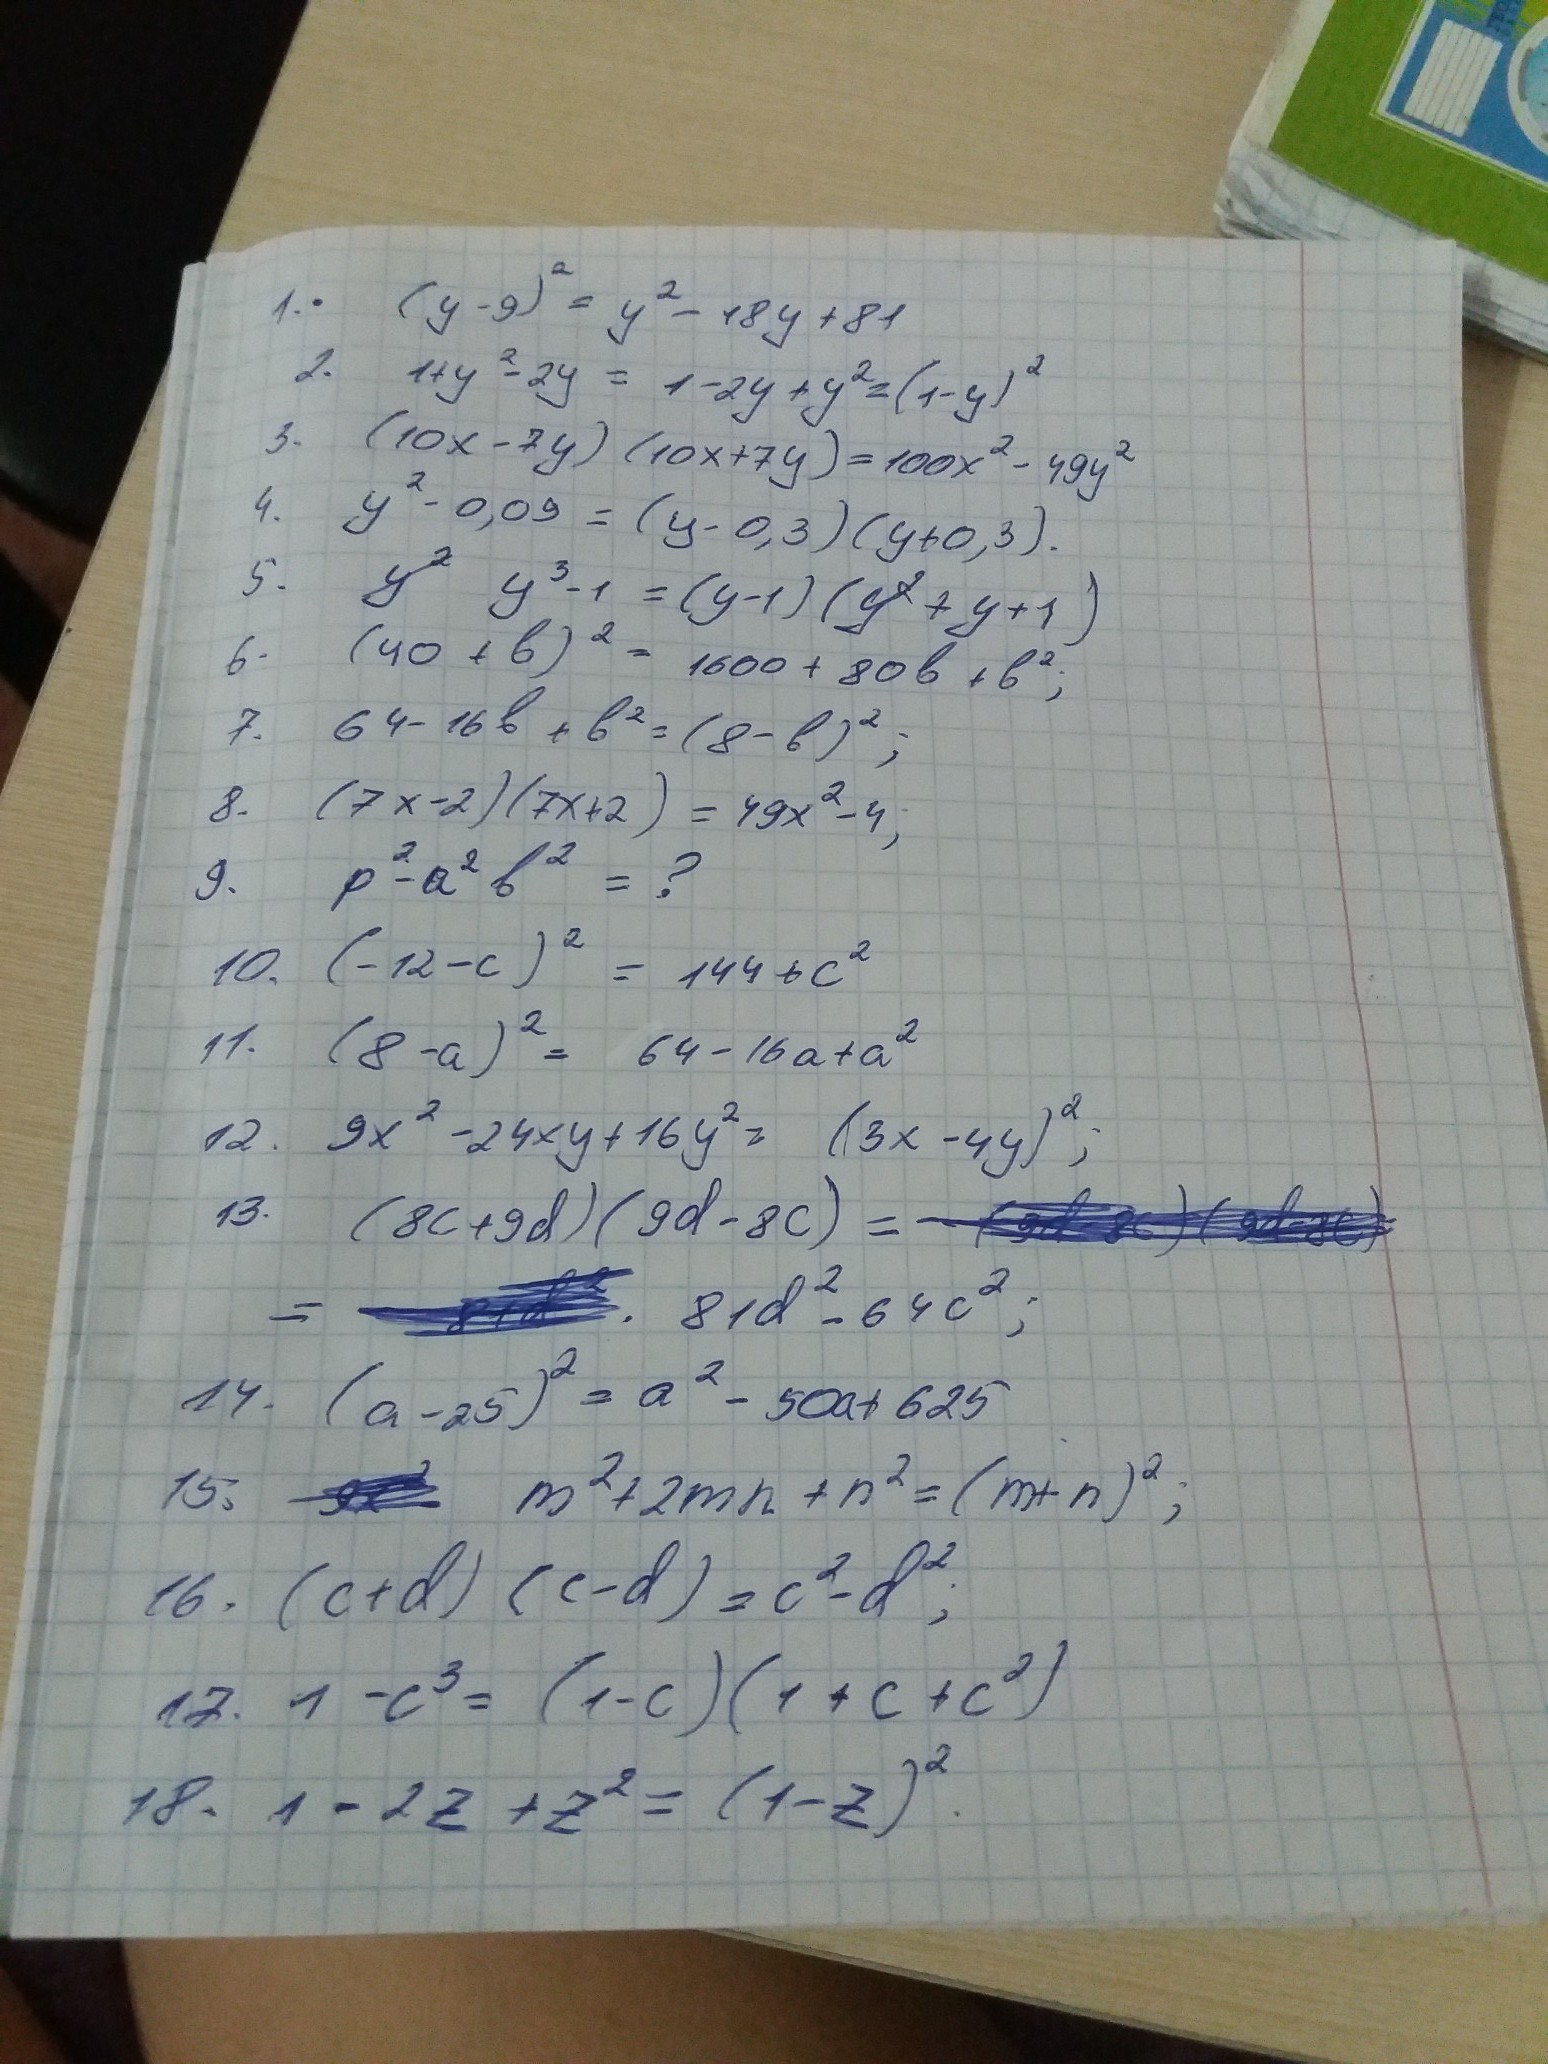 1. (y-9)² = y² - 18y + 81
2. 1+y²-2y = 1-2y+y² = (1-y)²
3. (10x-7y)(10x+7y) = 100x² - 49y²
4. y² - 0,09 = (y-0,3)(y+0,3).
5. y² y³-1 = (y-1)(y²+y+1)
6. (40+b)² = 1600 + 80b + b²;
7. 64-16b+b² = (8-b)²;
8. (7x-2)(7x+2) = 49x²-4;
9. p²-a²b² = ?
10. (-12-c)² = 144+c²
11. (8-a)² = 64-16a+a²
12. 9x²-24xy+16y² = (3x-4y)²;
13. (8c+9d)(9d-8c) =
= 81d²-64c²;
14. (a-25)² = a² - 50a+625
15. m²+2mn+n² = (m+n)²;
16. (c+d)(c-d) = c²-d²;
17. 1-c³ = (1-c)(1+c+c²)
18. 1-2z+z² = (1-z)².